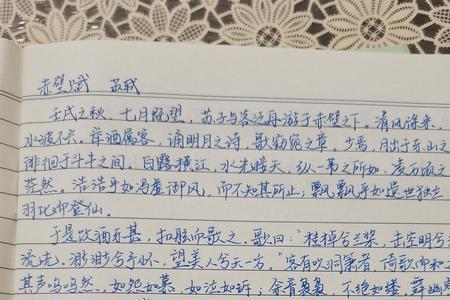 赤壁赋 苏轼
壬戌之秋，七月既望，苏子与客泛舟游于赤壁之下。清风徐来，
水波不兴。举酒属客，诵明月之诗，歌窈窕之章。少焉，月出于东山之
徘徊于斗牛之间。白露横江，水光接天，纵一苇之所如，凌万顷之
茫然。浩浩乎如冯虚御风，而不知其所止；飘飘乎如遗世独立
羽化而登仙。
于是饮酒乐甚，扣舷而歌之。歌曰：“桂棹兮兰桨，击空明兮
流光。渺渺兮予怀，望美人兮天一方。”客有吹洞箫者，倚歌而和
其声呜呜然，如怨如慕，如泣如诉；余音袅袅，不绝如缕。舞幽